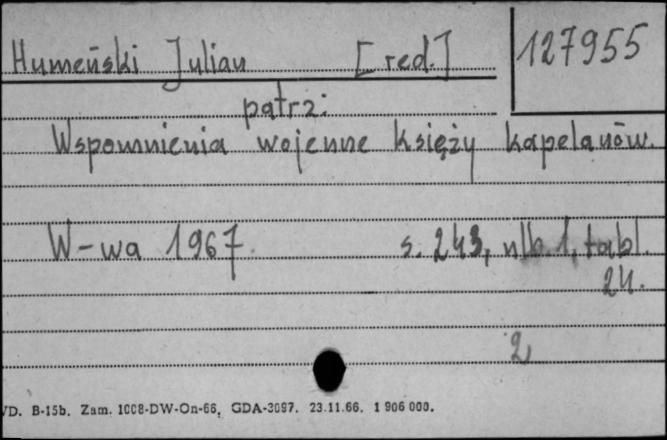 Humeński Julian [red.]
127955
patrz:
Wspomnienia wojenne Księży kapelanów.
W-wa 1967. s. 243, nlb. 1, tabl.
24.
2
VD. B-15b. Zam. 1008-DW-On-66, GDA-3097. 23.11.66. 1 906 000.